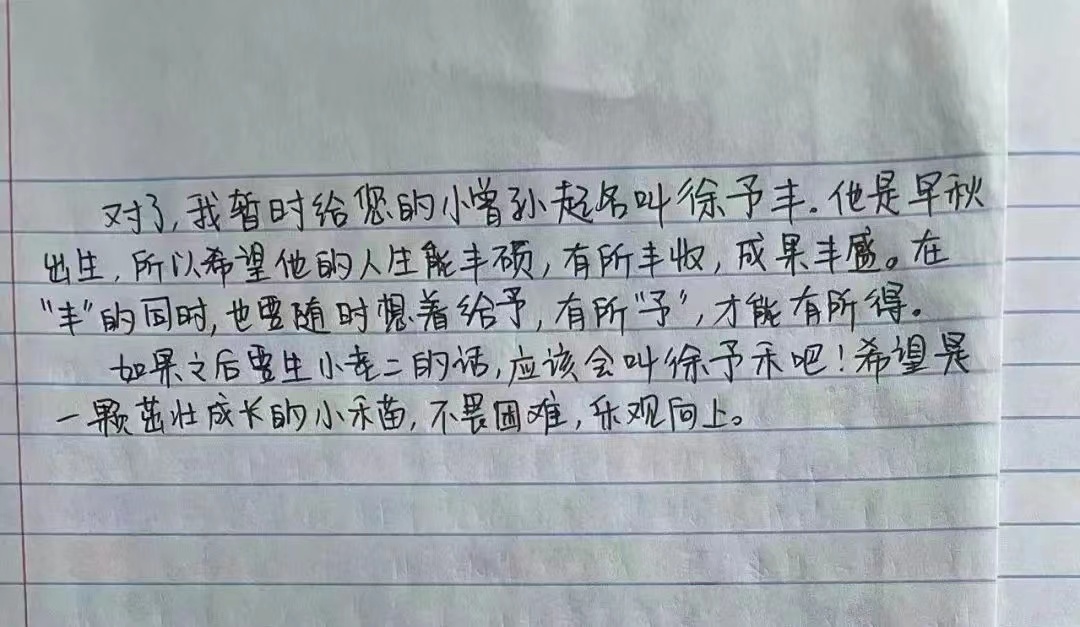 对了,我暂时给您的小曾孙起名叫徐予丰.他是早秋
出生,所以希望他的人生能丰硕,有所丰收,成果丰盛。在
"丰"的同时,也要随时想着给予,有所"予",才能有所得。
如果之后要生小老二的话,应该会叫徐予禾吧!希望是
一颗茁壮成长的小禾苗,不畏困难,乐观向上。